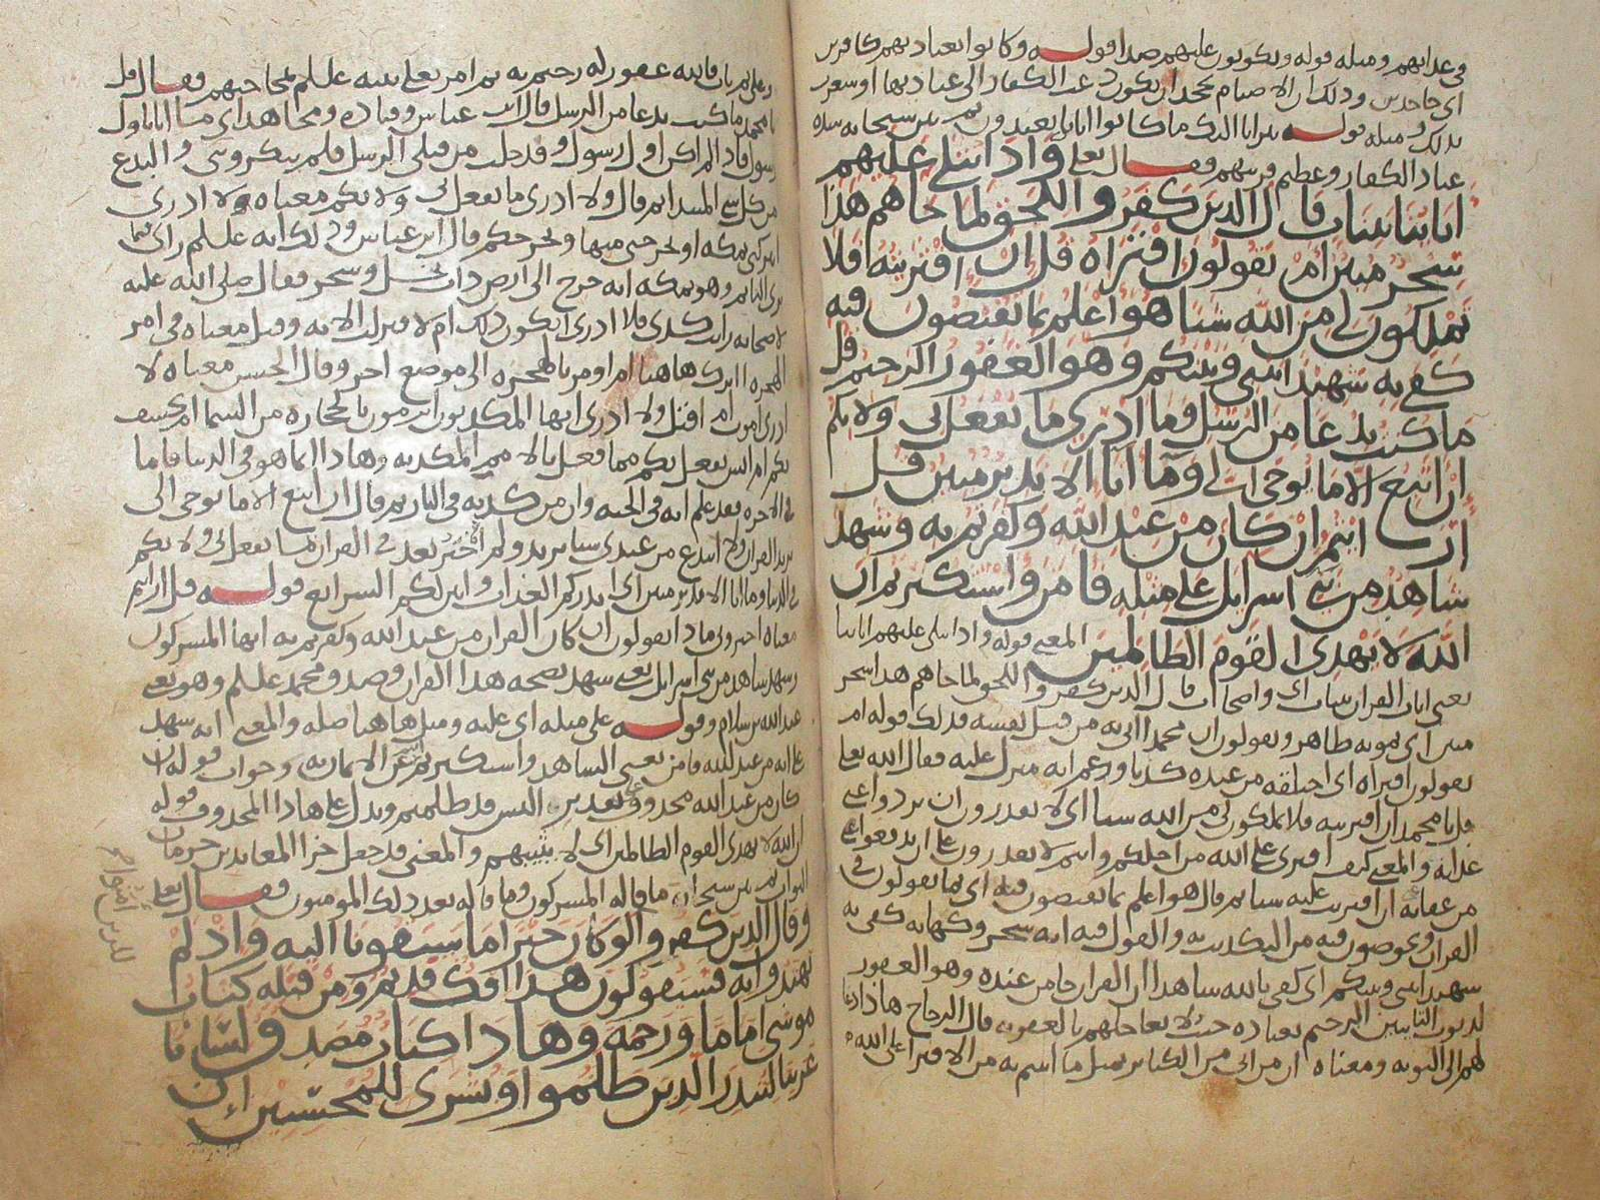 في عدابهم ومثله قوله ويكونون عليهم ضدا قوله وكانوا بعبادتهم كافرين
اي جاحدين وذلك ان الاصنام تجحد ان يكون عبد الكفار الى عبادتها او سعرت
بذلك ومثله قوله تبرانا اليك ما كانوا ايانا يعبدون ثم بين سبحانه سده
عناد الكفار وعظم فريتهم فقال تعالى واذا تتلى عليهم
اياتنا بينات قال الذين كفروا للحق لما جاهم هذا
سحر مبين ام يقولون افتراه قل ان افتريته فلا
تملكون لي من الله شيا هو اعلم بما تفيضون فيه
كفى به شهيدا بيني وبينكم وهو الغفور الرحيم قل
ما كنت بدعا من الرسل وما ادري ما يفعل بي ولا بكم
ان اتبع الا ما يوحى الي وما انا الا نذير مبين قل
ارايتم ان كان من عند الله وكفرتم به وشهد
شاهد من بني اسرايل على مثله فامن واستكبرتم ان
الله لا يهدي القوم الظالمين المعنى قوله واذا تتلى عليهم اياتنا
يعني ايات القران بينات اي واضحات قال الذين كفروا للحق لما جاهم هذا سحر
مبين اي تمويه ظاهر ويقولون ان محمدا اتى به من قبل نفسه فذلك قوله ام
يقولون افتراه اي اختلقه من عنده كذبا وزعم انه منزل عليه فقال الله تعالى
قل يا محمد ان افتريته فلا تملكون لي من الله شيا اي لا تقدرون ان تردوا عني
عذابه والمعنى كيف افتري على الله من اجلكم وانتم لا تقدرون على ان تدفعوا عني
من عقابه ان افتريت عليه شيا ثم قال هو اعلم بما تفيضون فيه اي بما تقولون في
القران وتخوضون فيه من التكذيب به والقول فيه انه سحر وكهانه كفى به
شهيدا بيني وبينكم اي كفى بالله شاهدا ان القران جا من عنده وهو الغفور
لذنوب التايبين الرحيم بعباده حيث لا يعاجلهم بالعقوبه قال الزجاج هاذا دعا
لهم الى التوبه ومعناه ان من اتى من الكباير بمثل ما اتيتم به من الافترا على الله
وعلى ثم تاب فالله غفور له رحيم به ثم امر تعالى نبيه علسلم بمحاجتهم فقال قل
يا محمد ما كنت بدعا من الرسل قال ابن عباس وقتاده ومجاهد اي ما انا باول
رسول فاذا لم اكن اول رسول وقد خلت من قبلي الرسل فلم تنكروني والبدع
من كل شي المبتدا ثم قال ولا ادري ما يفعل بي ولا بكم معناه ولا ادري
اتركني بمكه او يخرجني منها ويخرجكم قال ابن عباس وذلك انه علسلم راى فيما
يرى النايم وهو بمكه انه خرج الى ارض ذات نخل وشجر فقال صلى الله عليه
لاصحابه رايت كذي فلا ادري ايكون ذلك ام لا فنزلت الايه وقيل معناه في امر
الهجره ااترك هاهنا ام اومر بالهجره الى موضع اخر وقال الحسن معناه لا
ادري اموت ام اقتل ولا ادري ايها المكذبون اترمون بالحجاره من السما ام يخسف
بكم ام ايش يفعل بكم مما فعل بالامم المكذبه وهاذا انما هو في الدنيا فاما
في الاخره فقد علم انه في الجنه وان من كذبه في النار ثم قال ان اتبع الا ما يوحى الي
يريد القران ولا ابتدع من عندي شيا يريد ولم اختر بعد في القران ما يفعل بي ولا بكم
في الدنيا وما انا الا نذير مبين اي انذركم العذاب وابين لكم الشرايع قوله قل ارايتم
معناه اخبروني ماذا تقولون ان كان القران من عند الله وكفرتم به ايها المشركون
وشهد شاهد من بني اسرايل يعني شهد بصحه هذا القران وصدق محمد علسلم وهو يعني
عبدالله بن سلام وقوله على مثله اي عليه ومثل هاهنا صله والمعنى انه شهد
على انه من عند الله فامن يعني الشاهد واستكبرتم انتم عن الايمان به وجواب قوله ان
كان من عند الله محذوف على تقدير اليس قد ظلمتم ويدل على هاذا المحذوف قوله
ان الله لا يهدي القوم الظالمين اي لا يثيبهم والمعنى قد جعل جزا المعاندين حرمان
الثواب ثم بين سبحانه ما قاله المشركون وما قاله بعد ذلك المومنون فقال تعالى
وقال الذين كفروا للذين امنوا لو كان خيرا ما سبقونا اليه واذ لم
يهتدوا به فسيقولون هذا افك قديم ومن قبله كتاب
موسى اماما ورحمه وهاذا كتاب مصدق لسانا
عربيا لتنذر الذين ظلموا وبشرى للمحسنين ان
للذين امنوا صح